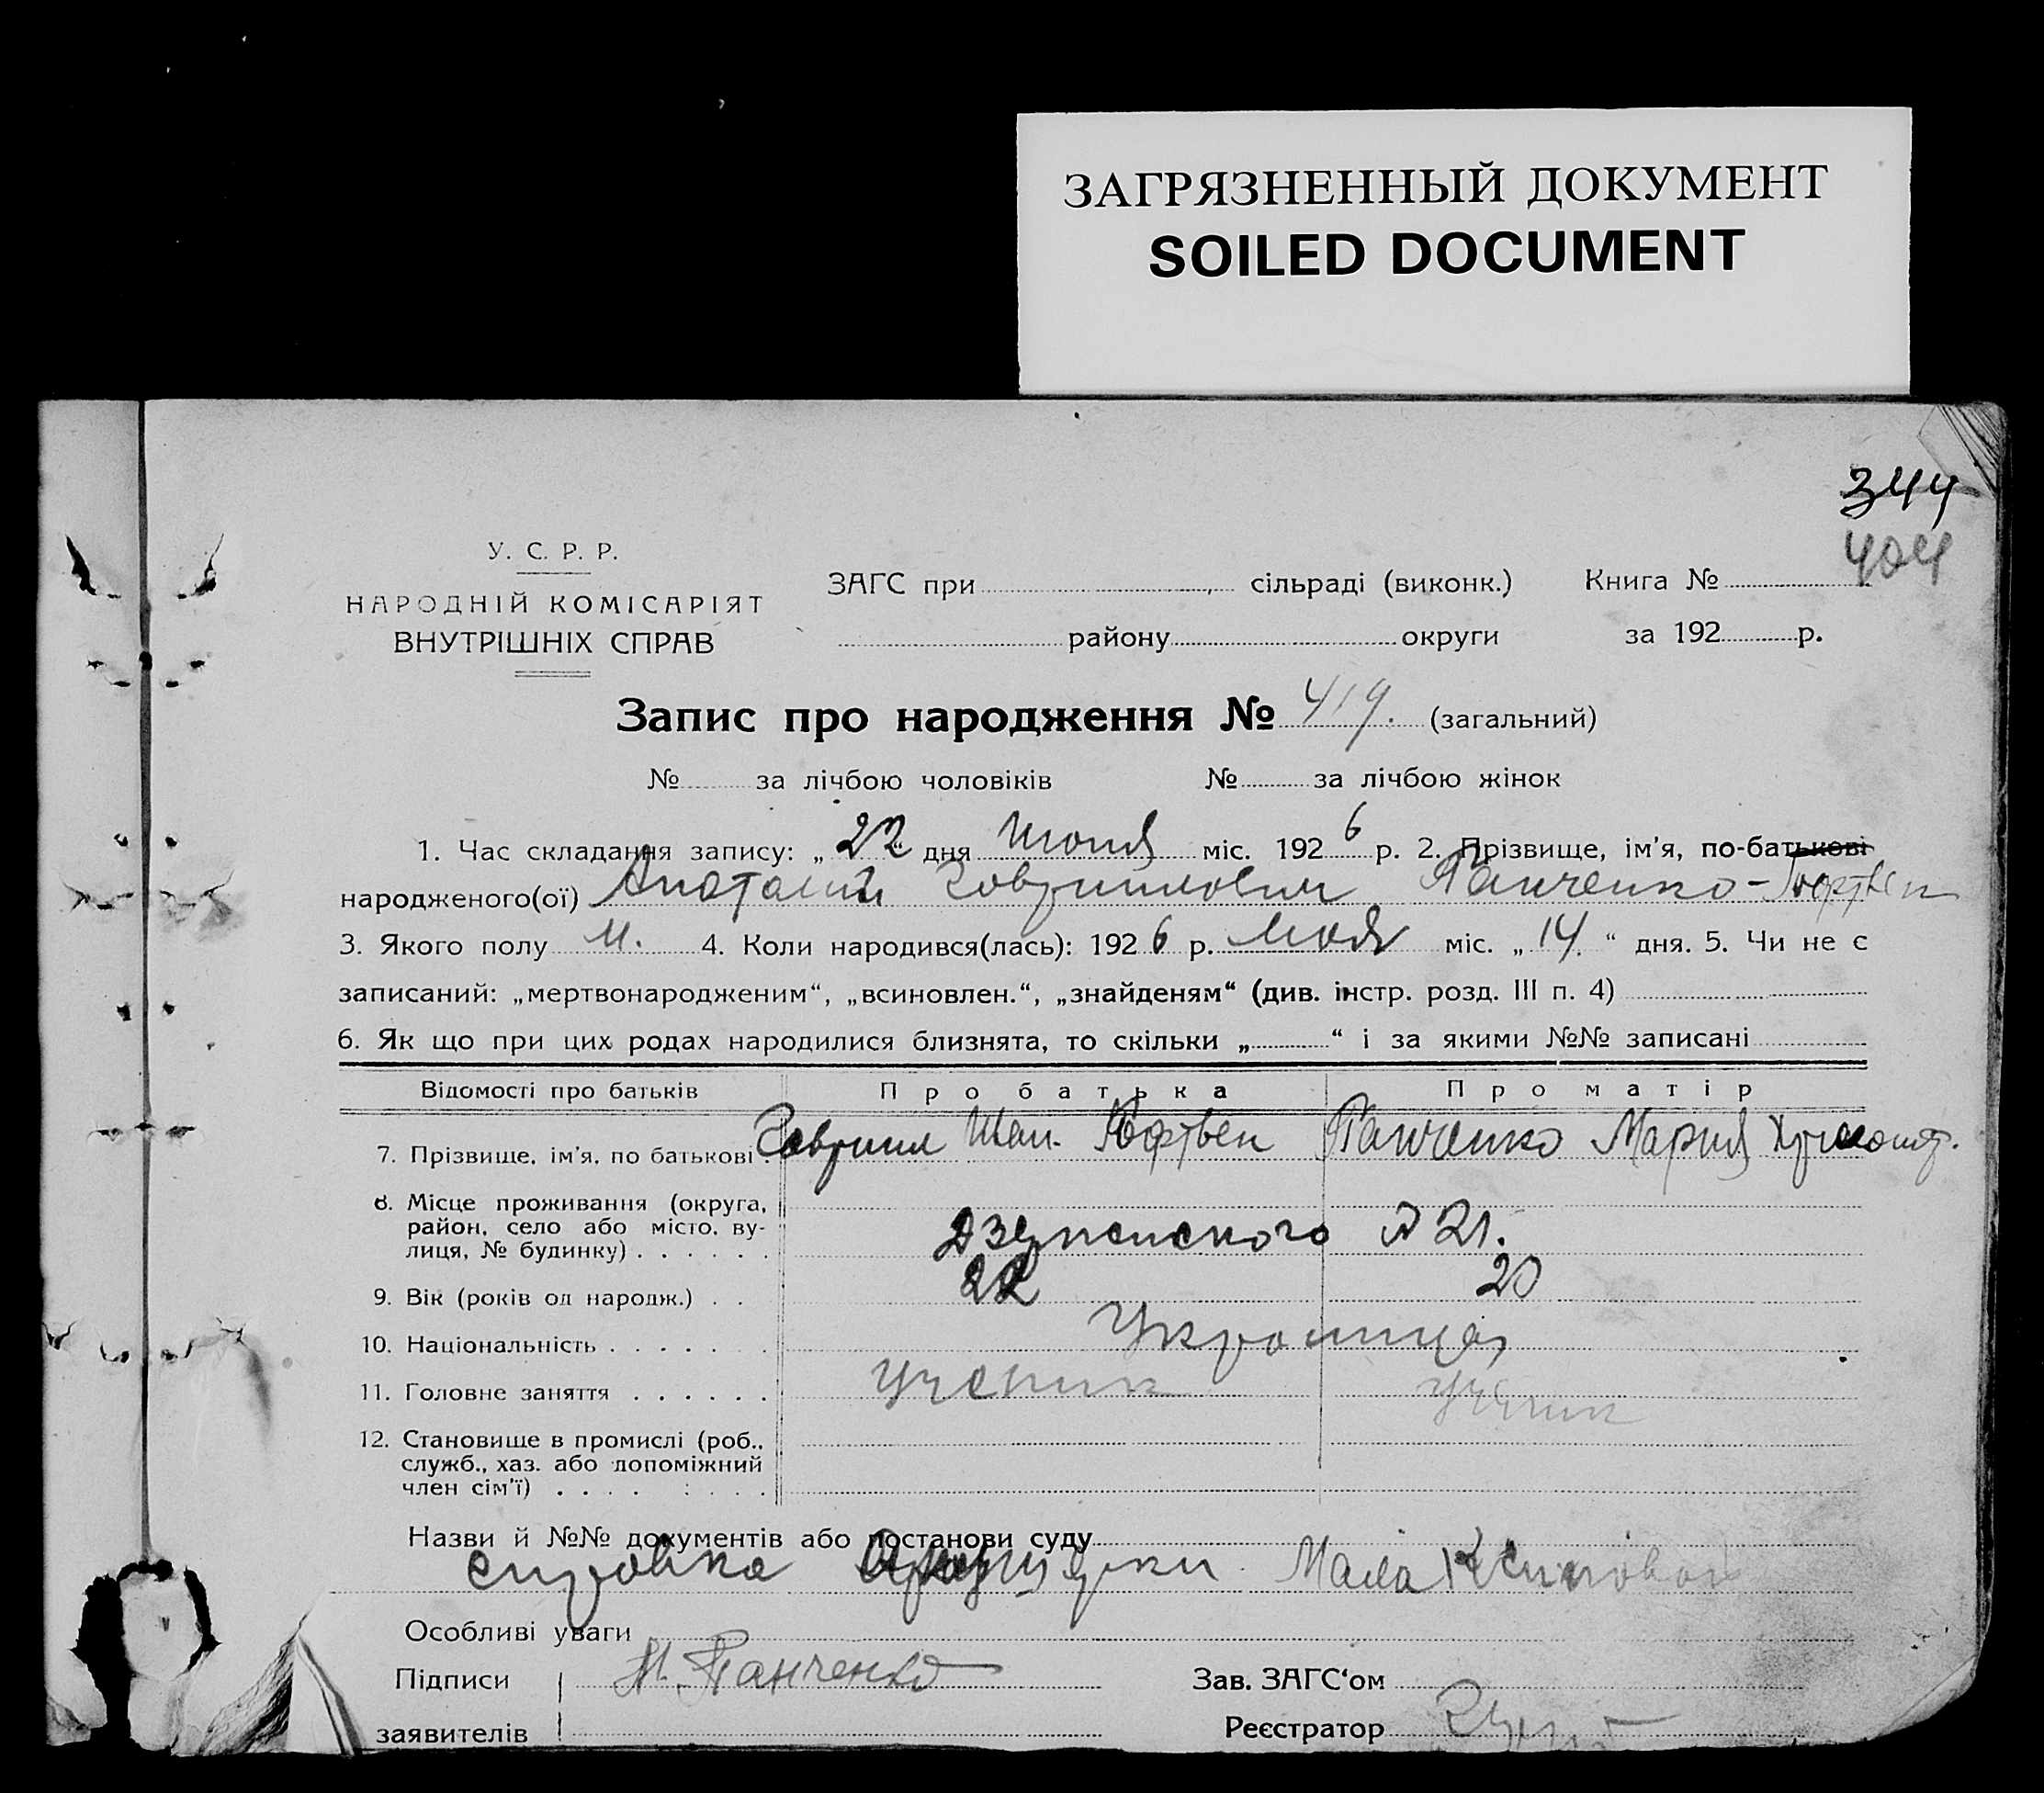 ЗАГРЯЗНЕННЫЙ ДОКУМЕНТ
SOILED DOCUMENT
344
404
У. С. Р. Р.
НАРОДНІЙ КОМІСАРІЯТ
ВНУТРІШНІХ СПРАВ
ЗАГС при сільраді (виконк.) Книга №
району округи за 192 р.
Запис про народження № 419. (загальний)
№ за лічбою чоловіків № за лічбою жінок
1. Час складання запису: „22" дня Июня міс. 1926 р. 2. Прізвище, ім'я, по-батькові
народженого(ої) Анатолий Гаврилович Панченко-
3. Якого полу м. 4. Коли народився(лась): 1926 р. міс. „14." дня. 5. Чи не є
записаний: „мертвонародженим", „всиновлен.", „знайденям" (див. інстр. розд. III п. 4)
6. Як що при цих родах народилися близнята, то скільки „ " і за якими №№ записані
Відомості про батьків Про батька Про матір
7. Прізвище, ім'я, по батькові Гавриил Панченко Мария
8. Місце проживання (округа,
район, село або місто, ву-
лиця, № будинку) Дзержинского № 21.
9. Вік (років од народж.) 22 20
10. Національність Украинцы
11. Головне заняття ученик
12. Становище в промислі (роб.,
служб., хаз. або допоміжний
член сім'ї)
Назви й №№ документів або постанови суду
справка Акушерки
Особливі уваги
Підписи М. Панченко Зав. ЗАГС'ом
заявителів Реєстратор